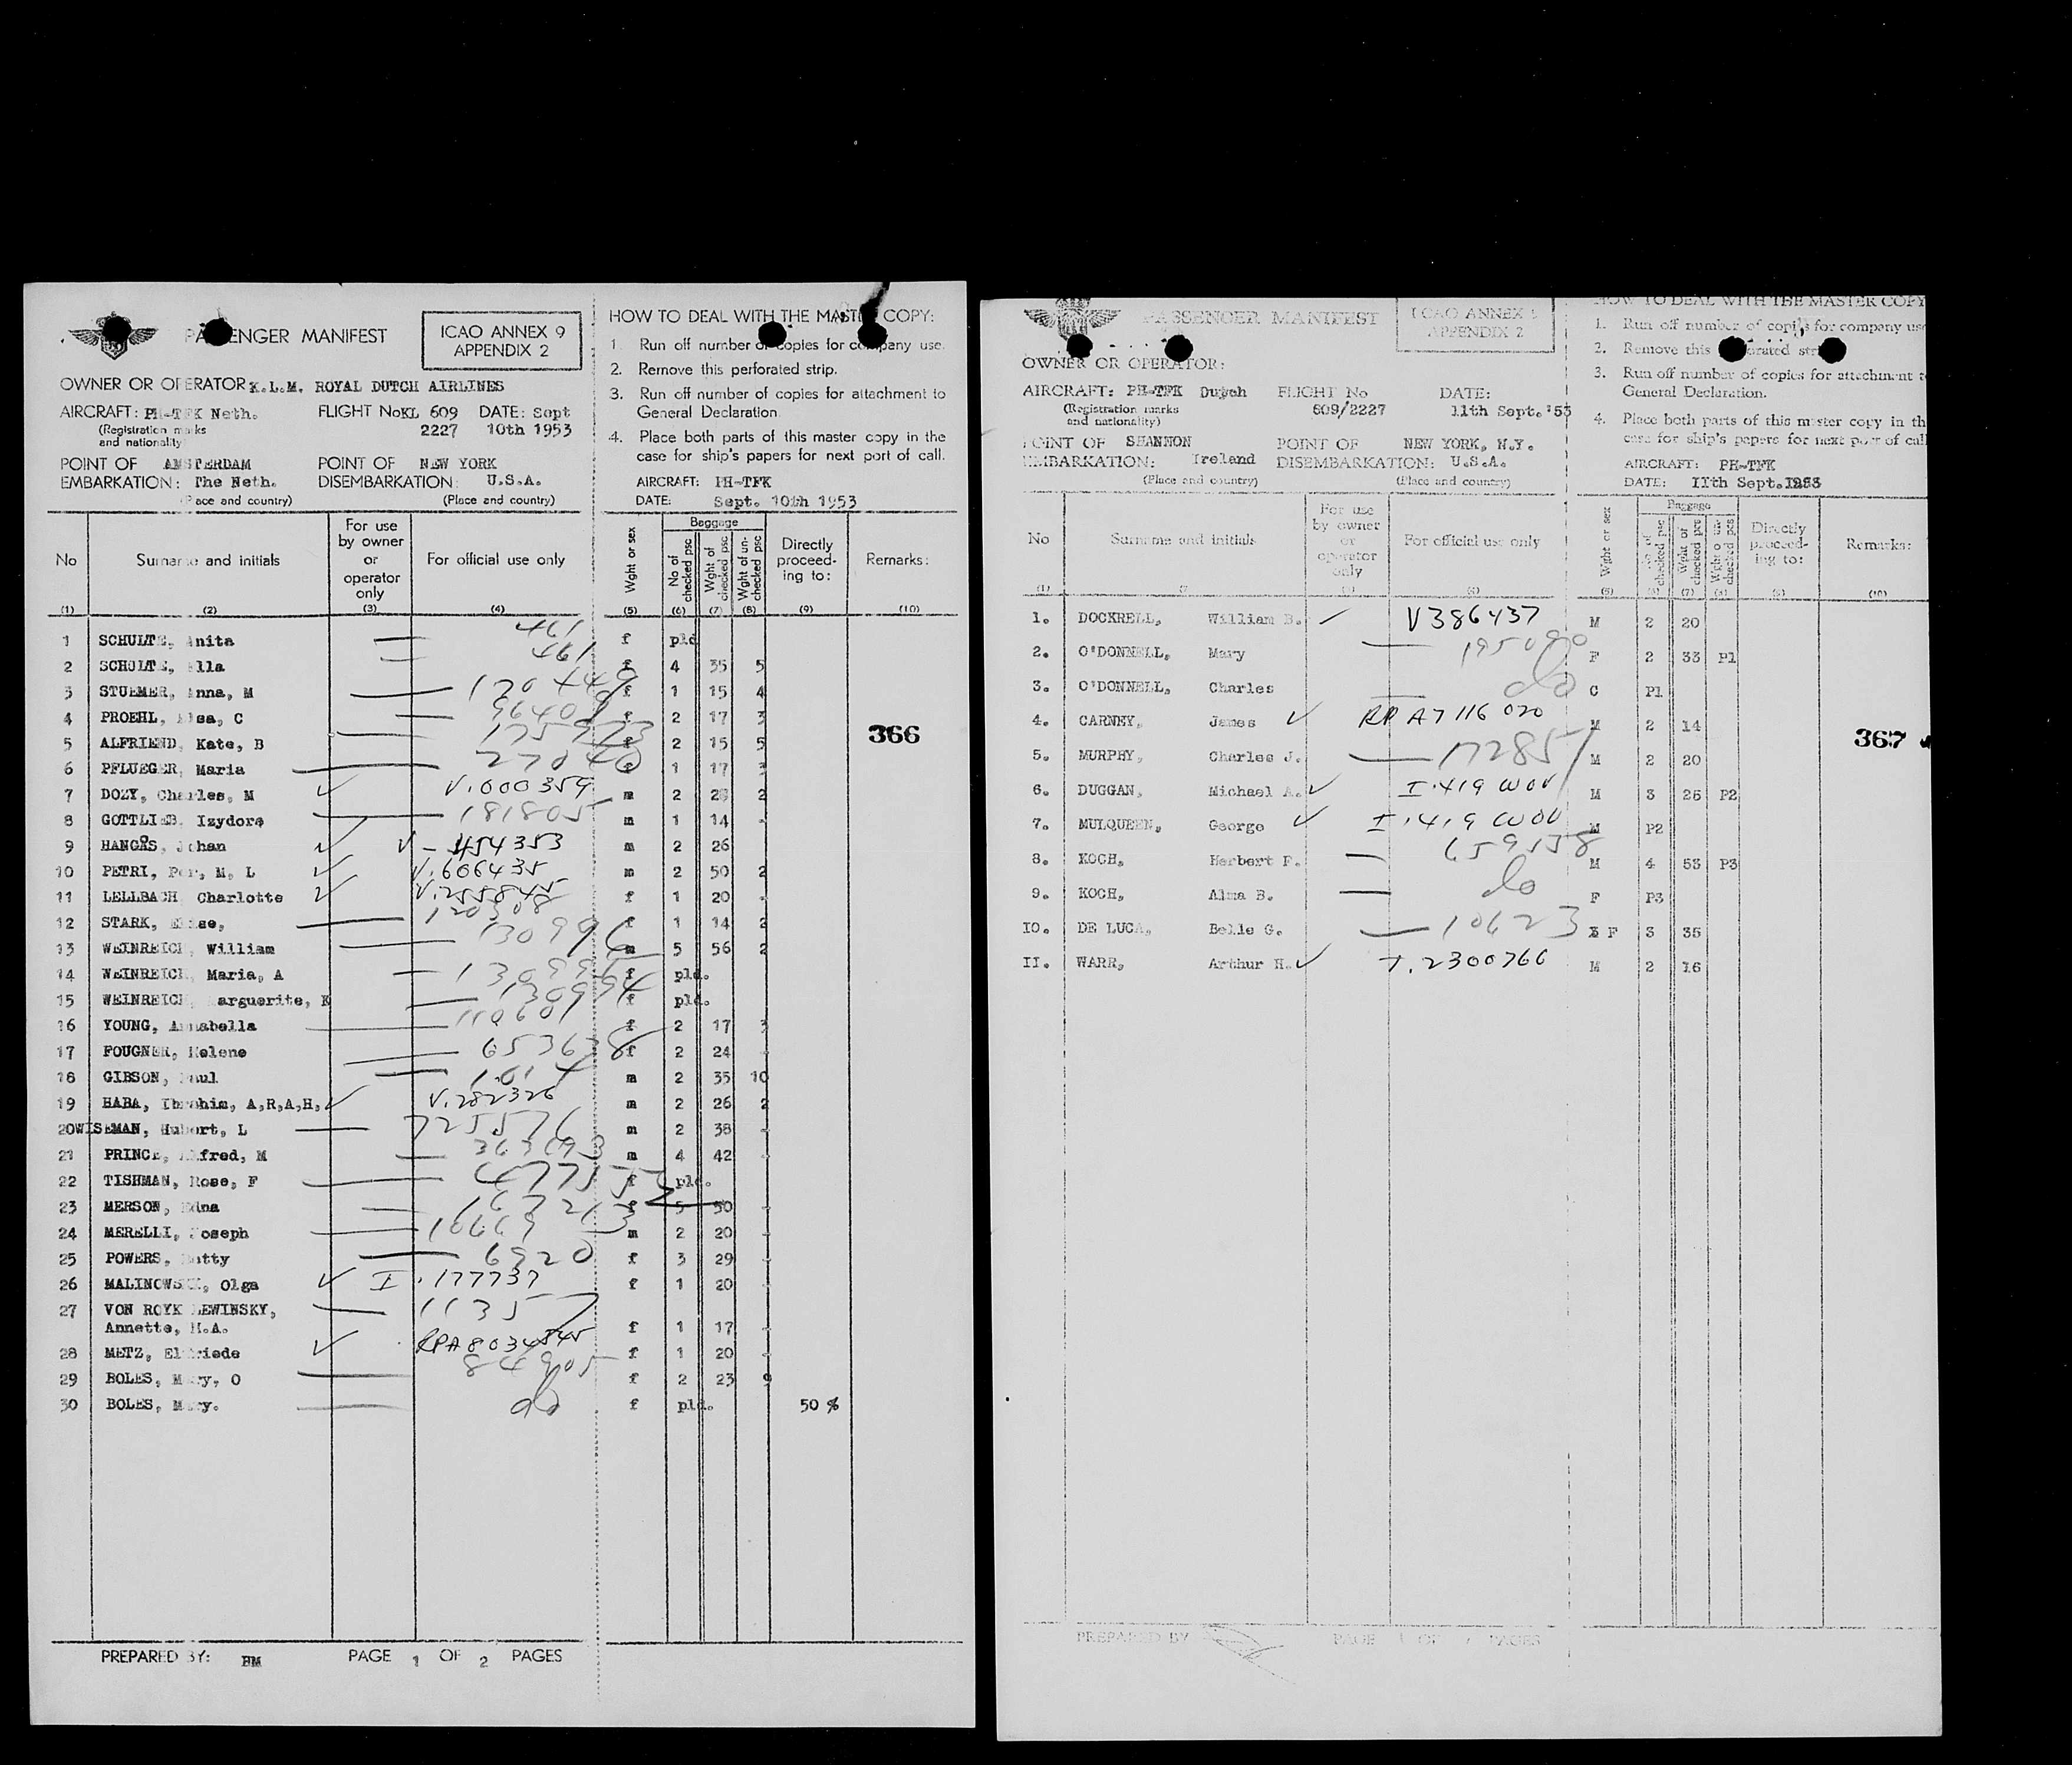 PASSENGER MANIFEST
ICAO ANNEX 9
APPENDIX 2
OWNER OR OPERATOR K.L.M. ROYAL DUTCH AIRLINES
AIRCRAFT: PH-TFK Neth. FLIGHT No KL 609 DATE: Sept
(Registration marks and nationality) 2227 10th 1953
POINT OF AMSTERDAM POINT OF NEW YORK
EMBARKATION: The Neth. DISEMBARKATION: U.S.A.
(Place and country) (Place and country)
HOW TO DEAL WITH THE MASTER COPY:
1. Run off number of copies for company use.
2. Remove this perforated strip.
3. Run off number of copies for attachment to
General Declaration.
4. Place both parts of this master copy in the
case for ship's papers for next port of call.
AIRCRAFT: PH-TFK
DATE: Sept. 10th 1953
No Surname and initials For use by owner or operator only For official use only Wght or sex Baggage No of checked psc Wght of checked psc Wght of un-checked psc Directly proceed-ing to: Remarks:
(1) (2) (3) (4) (5) (6) (7) (8) (9) (10)
1 SCHULTE, Anita 461 f pld
2 SCHULTE, Ella 461 f 4 35 5
3 STUEMER, Anna, M f 1 15 4
4 PROEHL, Elsa, C f 2 17 3
5 ALFRIEND, Kate, B f 2 15 5
366
6 PFLUEGER, Maria f 1 17 3
7 DOZY, Charles, M V.000359 m 2 2
8 GOTTLIEB, Izydore 181805 m 1 14 -
9 HANGÅS, Johan V-454353 m 2 26
10 PETRI, Per, M, L V.606435 m 2 50 2
11 LELLBACH, Charlotte f 1 20 -
12 STARK, Elise, f 1 14 2
13 WEINREICH, William 130996 m 5 56 2
14 WEINREICH, Maria, A 130995 f pld.
15 WEINREICH, Marguerite, K 130994 f pld.
16 YOUNG, Annabella 110601 f 2 17 3
17 FOUGNER, Helene 653638 f 2 24 -
18 GIBSON, Paul m 2 35 10
19 BABA, Ibrahim, A,R,A,H, V.282326 m 2 26 2
20 WISEMAN, Hubert, L 725576 m 2 38 -
21 PRINCE, Alfred, M m 4 42 -
22 TISHMAN, Rose, F f pld.
23 MERSON, Edna f 5 50 -
24 MERELLI, Joseph m 2 20 -
25 POWERS, Betty 6920 f 3 29 -
26 MALINOWSKI, Olga I.177737 f 1 20 -
27 VON ROYK LEWINSKY, 1135
Annette, H.A. f 1 17 -
28 METZ, Elfriede RPA8034845 f 1 20 -
29 BOLES, Mary, O 84905 f 2 23 9
30 BOLES, Mary. do f pld. 50 %
PREPARED BY: BM PAGE 1 OF 2 PAGES
PASSENGER MANIFEST
ICAO ANNEX 9
APPENDIX 2
OWNER OR OPERATOR:
AIRCRAFT: PH-TFK Dutch FLIGHT No DATE:
(Registration marks and nationality) 609/2227 11th Sept.'53
POINT OF SHANNON POINT OF NEW YORK, N.Y.
EMBARKATION: Ireland DISEMBARKATION: U.S.A.
(Place and country) (Place and country)
HOW TO DEAL WITH THE MASTER COPY
1. Run off number of copies for company use
2. Remove this perforated strip
3. Run off number of copies for attachment to
General Declaration.
4. Place both parts of this master copy in th
case for ship's papers for next port of call
AIRCRAFT: PH-TFK
DATE: 11th Sept.1953
No Surname and initials For use by owner or operator only For official use only Wght or sex Baggage No of checked psc Wght of checked pcs Wght of un-checked pcs Directly proceed-ing to: Remarks:
1. DOCKRELL, William B. V386437 M 2 20
2. O'DONNELL, Mary F 2 33 P1
3. O'DONNELL, Charles do C P1
4. CARNEY, James RPA7116020 M 2 14
367
5. MURPHY, Charles J. 17285 M 2 20
6. DUGGAN, Michael A. I.419 WOV M 3 25 P2
7. MULQUEEN, George I.419 WOV M P2
8. KOCH, Herbert F. 659558 M 4 53 P3
9. KOCH, Alma B. do F P3
10. DE LUCA, Belle G. 10623 F 3 35
11. WARR, Arthur H. T.2300766 M 2 16
PREPARED BY PAGE 1 OF PAGES